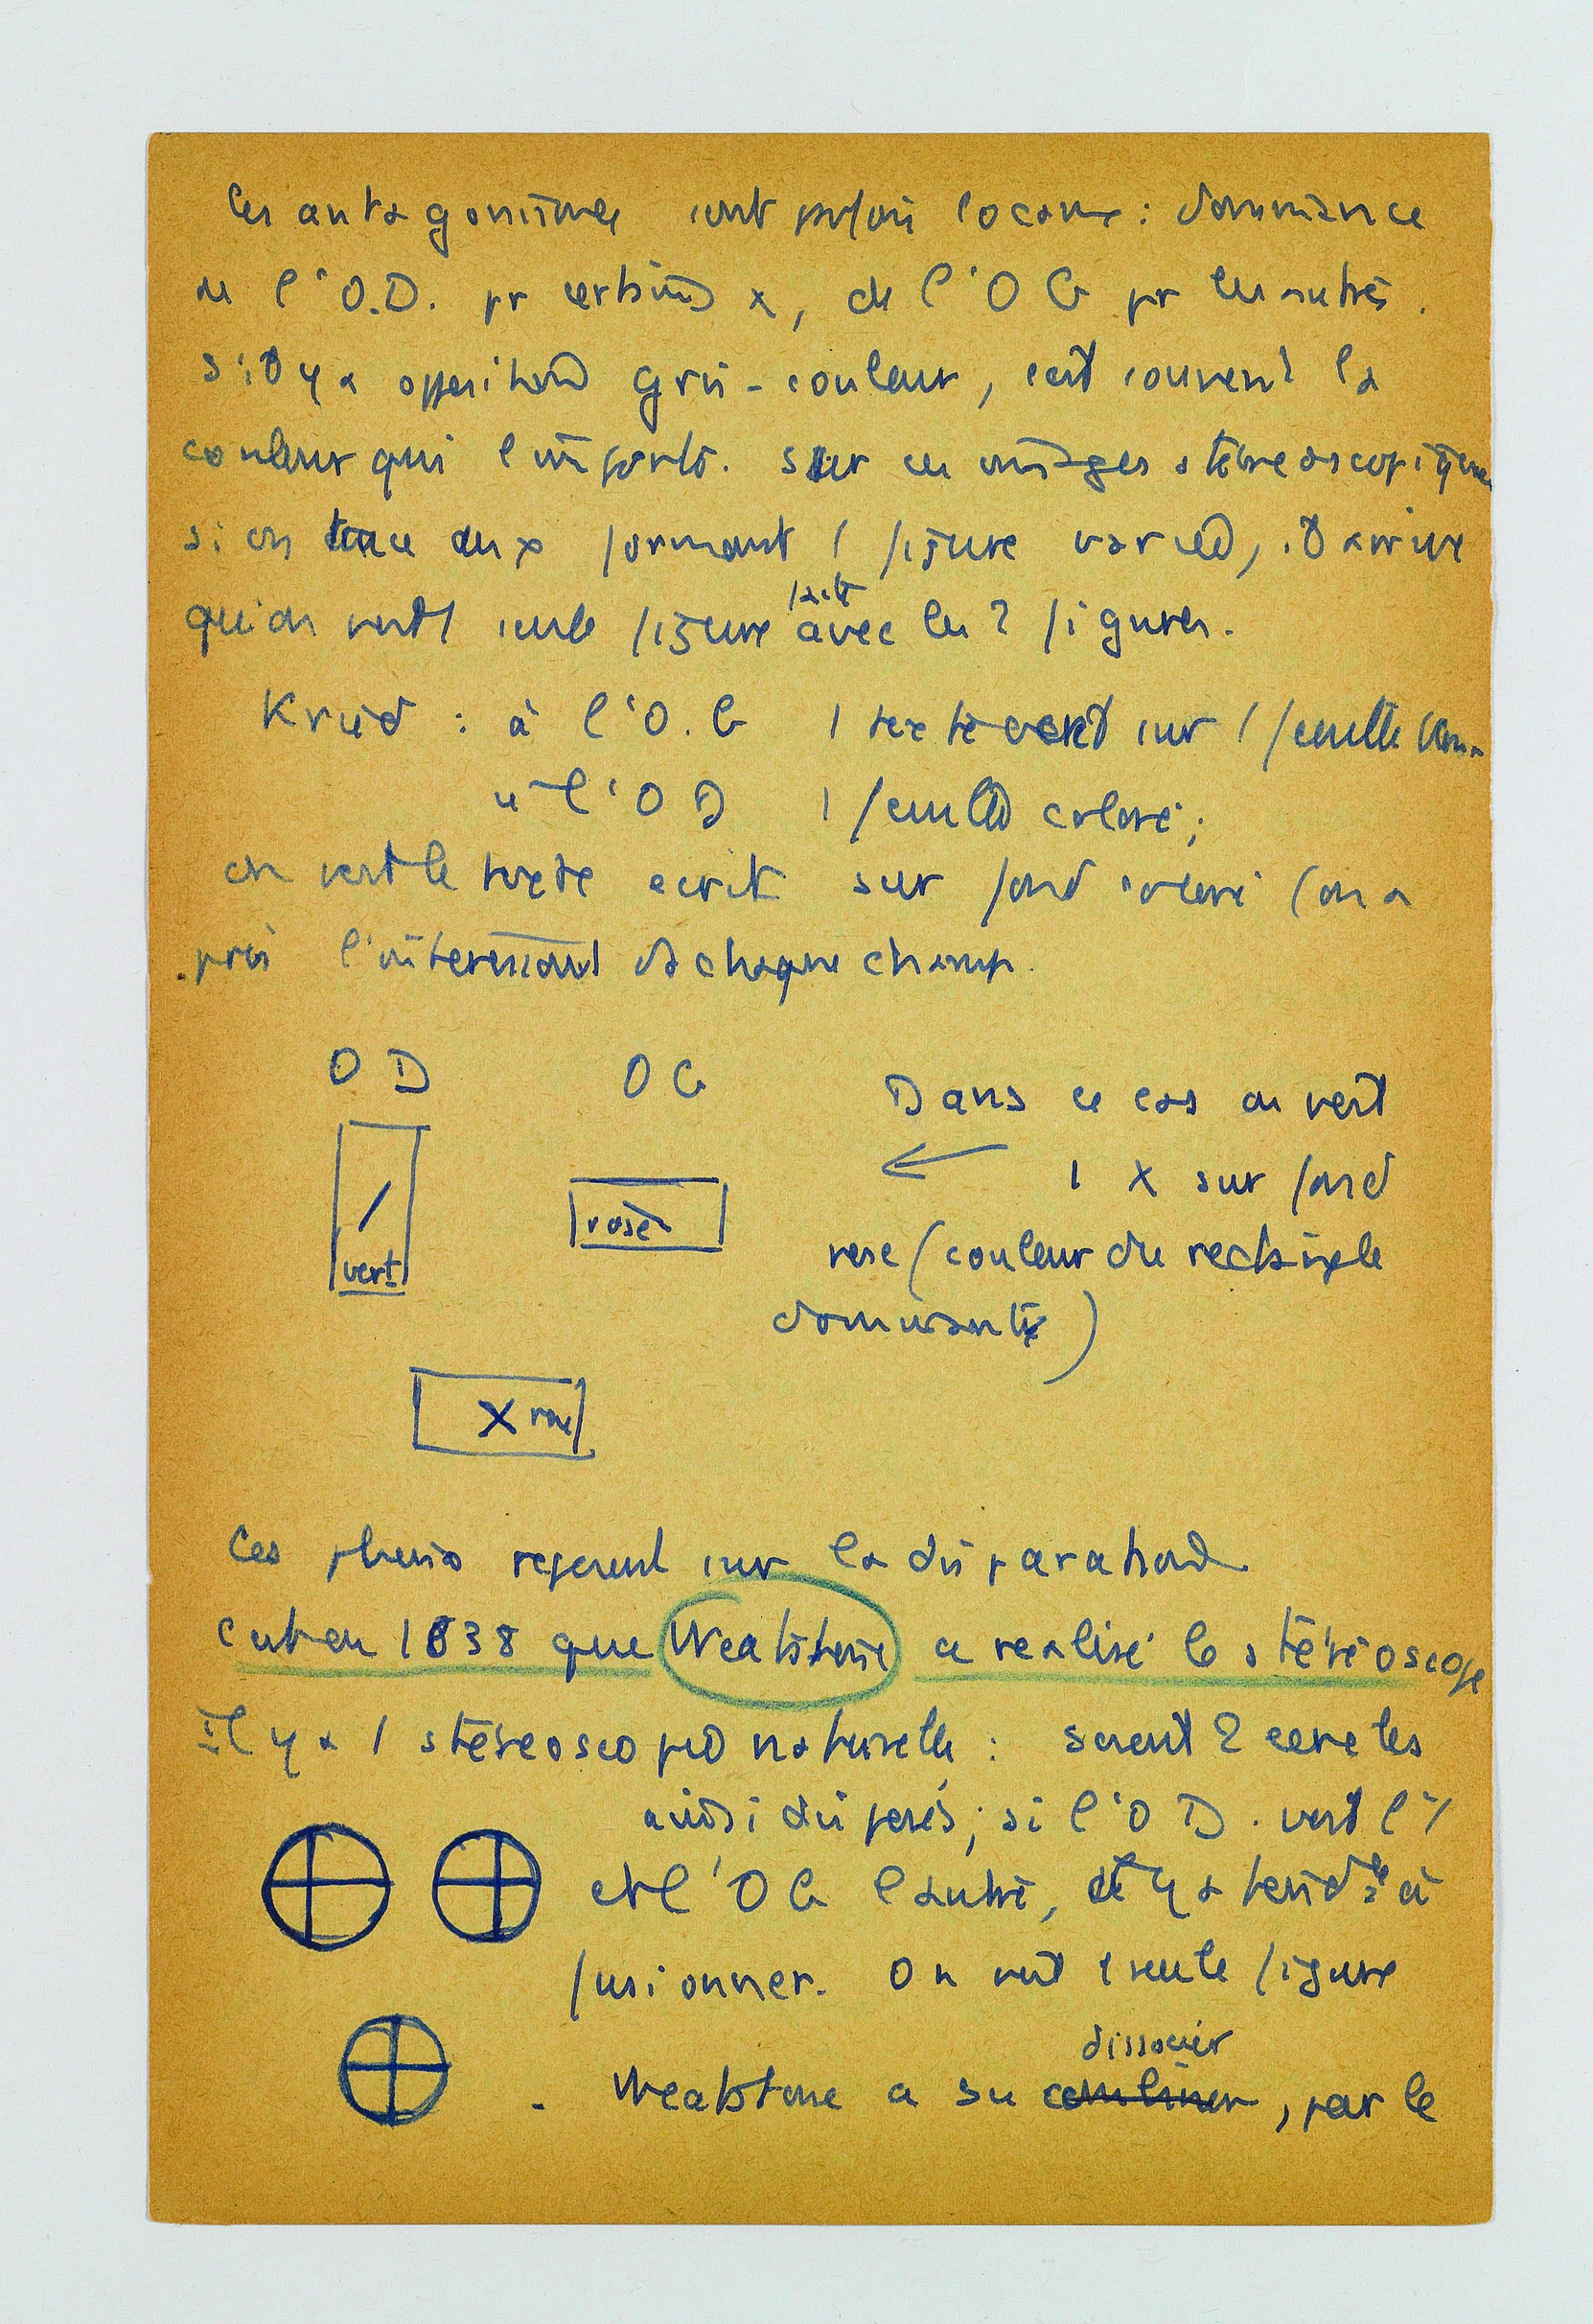 les antagonismes sont parfois locaux : dominance
de l'O.D. pr certains x, de l'O G pr les autres.
S'il y a opposition gris-couleur, c'est souvent la
couleur qui l'emporte. Sur ces images stéreoscopiques
si on trace deux formant 1 figure variée, il arrive
qu'on voit 1 seule figure faite avec les 2 figures.
: à l'O.G 1 texte sur 1 feuille
" l'O D 1 feuille colore;
on voit le texte ecrit sur fond coloré (on a
pris l'interessant de chaque champ.
O D O G Dans ce cas on voit
1 X sur fond
rose (couleur du rectangle
dominante)
rose
vert
X rose
Ces pheno reposent sur la disparation
C'est en 1838 que Weatstone a realisé le stéréoscope
Il y a 1 stéréoscopie naturelle : soient 2 cercles
ainsi disposés; si l'O D. voit l'1
et l'O G l'autre, il y a tendce à
fusionner. On voit 1 seule figure
dissocier
. Weatstone a su combiner, par le